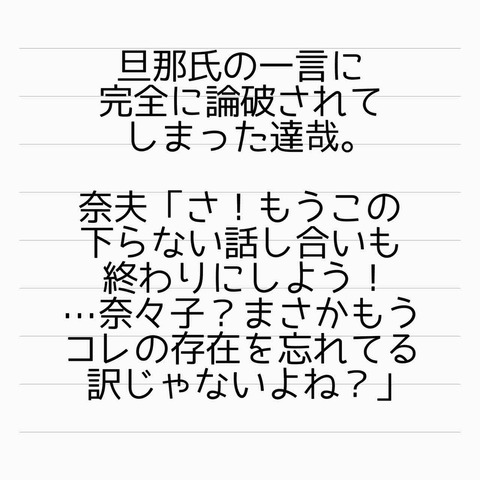 旦那氏の一言に
完全に論破されて
しまった達哉。
奈夫「さ！もうこの
下らない話し合いも
終わりにしよう！
…奈々子？まさかもう
コレの存在を忘れてる
訳じゃないよね？」